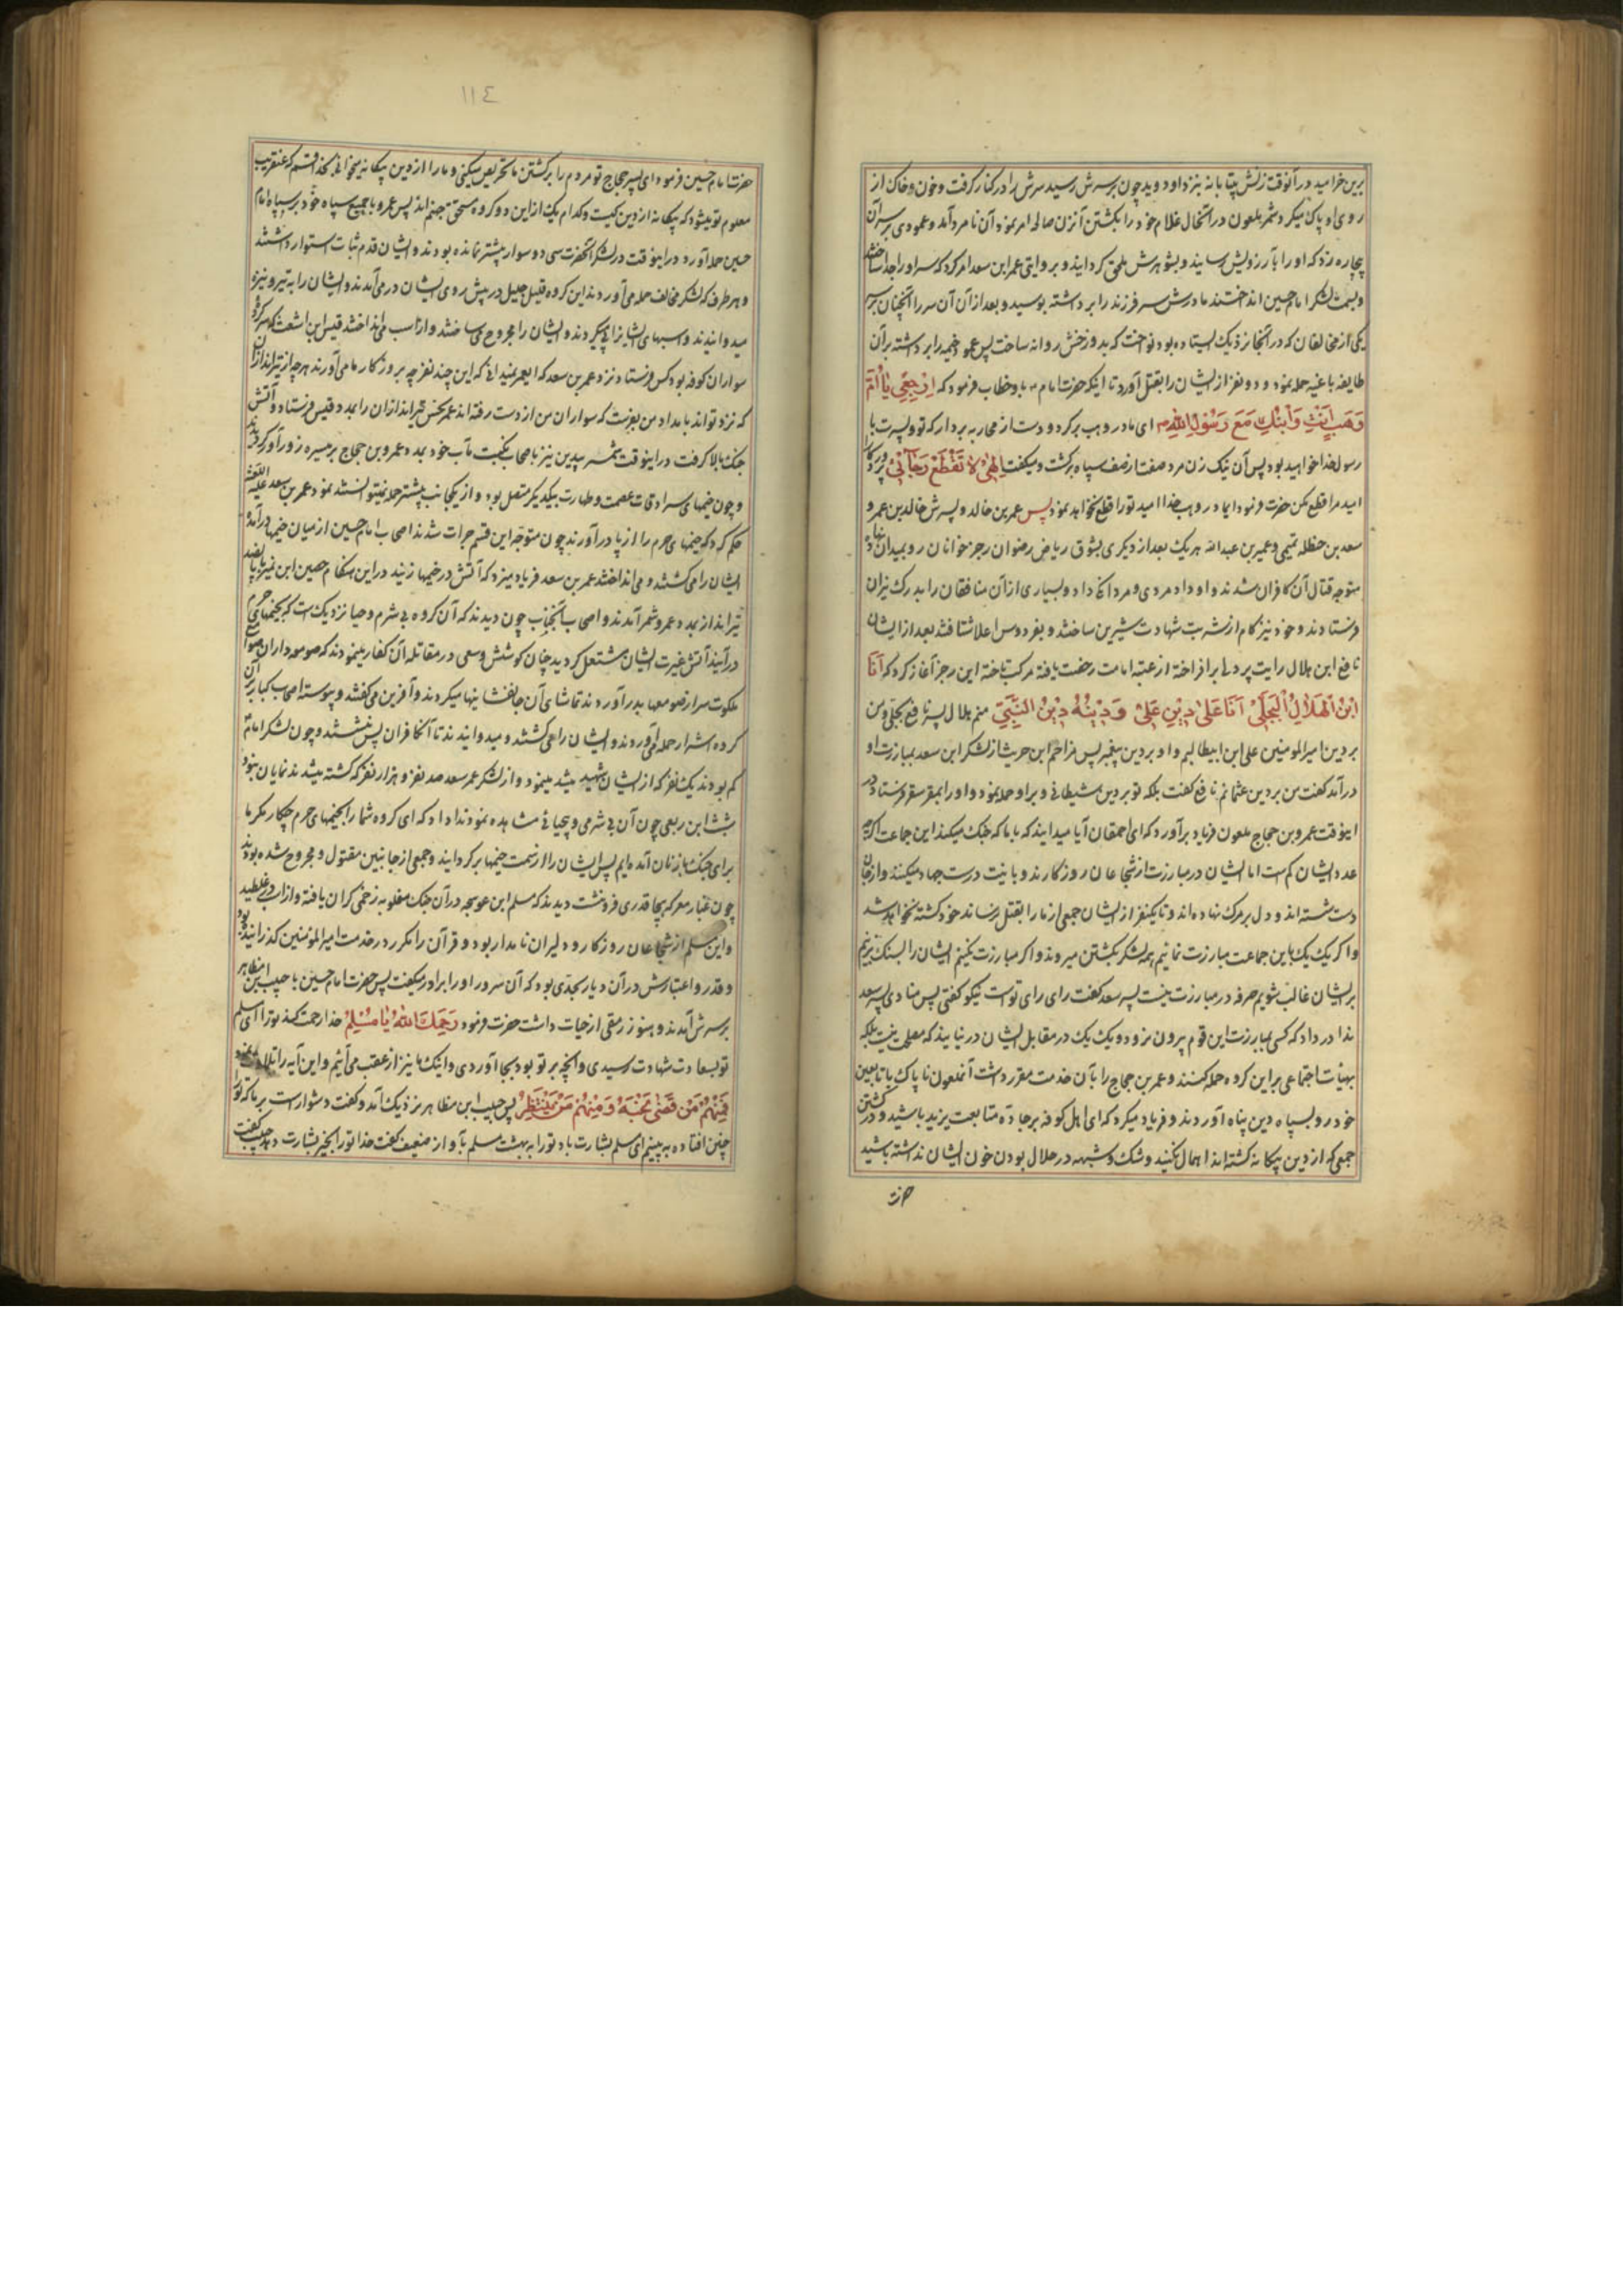 برین خرامید در آنوقت زنش بیتابانه بنزد او دوید چون برسرش رسید سرش را در کنار گرفت و خون و خاک از
روی او پاک میکرد شمر ملعون در آنحال غلام خود را بکشتن آنزن صالحه امر نمود آن نامرد آمد و عمودی بر سر آن
بیچاره زد که او را بآرزویش رسانید و بشوهرش ملحق گردانید و بروایتی عمر ابن سعد امر کرد که سر او را جدا ساختند
و بسمت لشکر امام حسین انداختند مادرش سر فرزند را برداشته بوسید و بعد از آن آن سر را آنچنان بر سر
یکی از مخالفان که در آنجا نزدیک ایستاده بود نواخت که بدوزخش روانه ساخت پس عمود خیمه را برداشته بر آن
طایفه باغیه حمله نمود و دو نفر از ایشان را بقتل آورد تا اینکه حضرت امام باو خطاب فرمود که اِرْجِعِی یٰا اُمَّ
وَهَبٍ اَنْتِ وَ ابْنُكِ مَعَ رَسُولِ اللهِ ای مادر وهب برگرد و دست از محاربه بردار که تو و پسرت با
رسول خدا خواهید بود پس آن نیک زن مرد صفت از صف سپاه برگشت و میگفت اِلٰهی لا تَقْطَعْ رَجٰائی پروردگارا
امید مرا قطع مکن حضرت فرمود ای مادر وهب خدا امید تو را قطع نخواهد نمود پس عمر بن خالد و پسرش خالد بن عمر و
سعد بن حنظله تمیمی و عمیر بن عبدالله هر یک بعد از دیگری بشوق ریاض رضوان رجز خوانان رو بمیدان نهاده
متوجه قتال آن کافران شدند و داد مردی و مردانگی داد و بسیاری از آن منافقان را بدرک نیران
فرستادند و خود نیز کام از شربت شهادت شیرین ساختند و بفردوس اعلا شتافتند بعد از ایشان
نافع ابن هلال رایت پردلی برافراخته از عتبه امامت رخصت یافته مرکب تاخته این رجز آغاز کرد که اَنَا
ابْنُ الْهَلٰالِ الْبَجَلِیّ اَنَا عَلیٰ دینِ عَلِیّ وَ دینُهُ دینُ النَّبِیّ منم هلال پسر نافع بجلی و من
بر دین امیر المومنین علی ابن ابیطالبم و او بر دین پیغمبر پس مزاحم ابن حریث از لشکر ابن سعد بمبارزت او
درآمد گفت من بر دین عثمانم نافع گفت بلکه تو بر دین شیطانی و بر او حمله نمود و او را بمقر سقر فرستاد در
اینوقت عمرو بن حجاج ملعون فریاد برآورد که ای احمقان آیا میدانید که با ما که جنک میکند این جماعت اگرچه
عدد ایشان کم است اما ایشان در مبارزت از شجاعان روزگارند و با نیت درست جهاد میکنند و از جان
دست شسته اند و دل بر مرک نهاده اند و تا یکنفر از ایشان جمعی از ما را بقتل نرساند خود کشته نخواهد شد
و اگر یک یک باین جماعت مبارزت نمائیم همه لشکر بکشتن میروند و اگر مبارزت نکنیم ایشان را بسنک بزنیم
بر ایشان غالب شویم صرفه در مبارزت نیست پسر سعد گفت رای رای تو است نیکو گفتی پس منادی پسر سعد
ندا در داد که کسی بمبارزت این قوم بیرون نرود و یک یک در مقابل ایشان در نیایند که مصلحت نیست بلکه
بهیئات اجتماعی بر این گروه حمله کنند و عمر بن حجاج را بآن خدمت مقرر داشت آنملعون ناپاک با تابعین
خود رو بسپاه دین پناه آوردند و فریاد میکرد که ای اهل کوفه بر جاده متابعت یزید باشید و در کشتن
جمعی که از دین بیگانه گشته اند اهمال نکنید و شک و شبهه در حلال بودن خون ایشان نداشته باشید
حضرت
١١٤
حضرت امام حسین فرمود ای پسر حجاج تو مردم را بر کشتن ما تحریص میکنی و ما را از دین بیگانه میخوانی بخدا قسم که عنقریب
معلوم تو میشود که بیگانه از دین کیست و کدام یک از این دو گروه مستحق جهنم اند پس عمرو با جمیع سپاه خود بر سپاه امام
حسین حمله آورد و در اینوقت در لشکر آنحضرت سی و دو سوار بیشتر نمانده بودند و ایشان قدم ثبات استوار داشتند
و هر طرف که لشکر مخالف حمله می آوردند این گروه قلیل جلیل در پیش روی ایشان در می آمدند و ایشان را به تیر و نیزه
میدوانیدند و اسبهای ایشانرا پی میکردند و ایشان را مجروح می ساختند و از اسب می انداختند قیس ابن اشعث که سرکرده
سواران کوفه بود کس فرستاد نزد عمر بن سعد که ایعمر نمیدانی که این چند نفر چه بروزگار ما می آورند هر چه از تیراندازان
که نزد تو اند بامداد من بفرست که سواران من از دست رفته اند عمر بخش تیراندازان را بمدد قیس فرستاد و آتش
جنک بالا گرفت در اینوقت شمر بیدین نیز باصحاب نکبت مآب خود بمدد عمرو بن حجاج بر میسره زور آور گردید
و چون خیمهای سرادقات عصمت و طهارت بیکدیگر متصل بود و از یکجانب بیشتر حمله نمیتوانستند نمود عمر بن سعد علیه اللعنة
حکم کرد که خیمهای حرم را از پا در آورند چون متوجه این قسم جرات شدند اصحاب امام حسین از میان خیمها درآمده
ایشان را می کشتند و می انداختند عمر بن سعد فریاد میزد که آتش در خیمها زنید در این هنگام حصین ابن نمیر با پانصد
تیرانداز بمدد عمرو شمر آمدند و اصحاب آنجناب چون دیدند که آن گروه بی شرم و حیا نزدیک است که بخیمهای حرم
درآیند آتش غیرت ایشان مشتعل گردید چنان کوشش و سعی در مقاتله آن کفار مینمودند که صومعه داران صوامع
ملکوت سر از صومعها بدر آوردند تماشای آن جانفشانیها میکردند و آفرین می گفتند و پیوسته اصحاب کبار بر آن
گروه اشرار حمله می آوردند و ایشان را می کشتند و میدوانیدند تا آنکافران پس نشستند و چون لشکر امام
کم بودند یک نفر که از ایشان شهید میشد مینمود و از لشکر عمر سعد صد نفر و هزار نفر که کشته میشدند نمایان نبود
شبث ابن ربعی چون آن بی شرمی و بیحیائی مشاهده نمود ندا داد که ای گروه شما را بخیمهای حرم چکار مگر ما
برای جنک با زنان آمده ایم پس ایشان را از سمت خیمها برگردانید و جمعی از جانبین مقتول و مجروح شده بودند
چون غبار معرکه هیجا قدری فرونشست دیدند که مسلم ابن عوسجه در آن جنک مغلوبه زخمی گران یافته و از اسب در غلطید
و این مسلم از شجاعان روزگار و دلیران نامدار بود و قرآن را مکرر در خدمت امیر المومنین گذرانیده بود
و قدر و اعتبارش در آن دیار بحدی بود که آن سرور او را برادر میگفت پس حضرت امام حسین با حبیب ابن مظاهر
بر سرش آمدند و هنوز رمقی از حیات داشت حضرت فرمود رَحِمَكَ اللهُ یٰا مُسْلِمُ خدا رحمت کند ترا ای مسلم
تو بسعادت شهادت رسیدی و آنچه بر تو بود بجا آوردی و اینک ما نیز از عقب می آئیم و این آیه را تلاوت نمود
فَمِنْهُمْ مَنْ قَضیٰ نَحْبَهُ وَ مِنْهُمْ مَنْ یَنْتَظِرُ پس حبیب ابن مظاهر نزدیک آمد و گفت دشوار است بر ما که تو را
چنین افتاده به بینیم ای مسلم بشارت باد تو را به بهشت مسلم بآواز ضعیف گفت خدا تو را بخیر بشارت دهد حبیب گفت